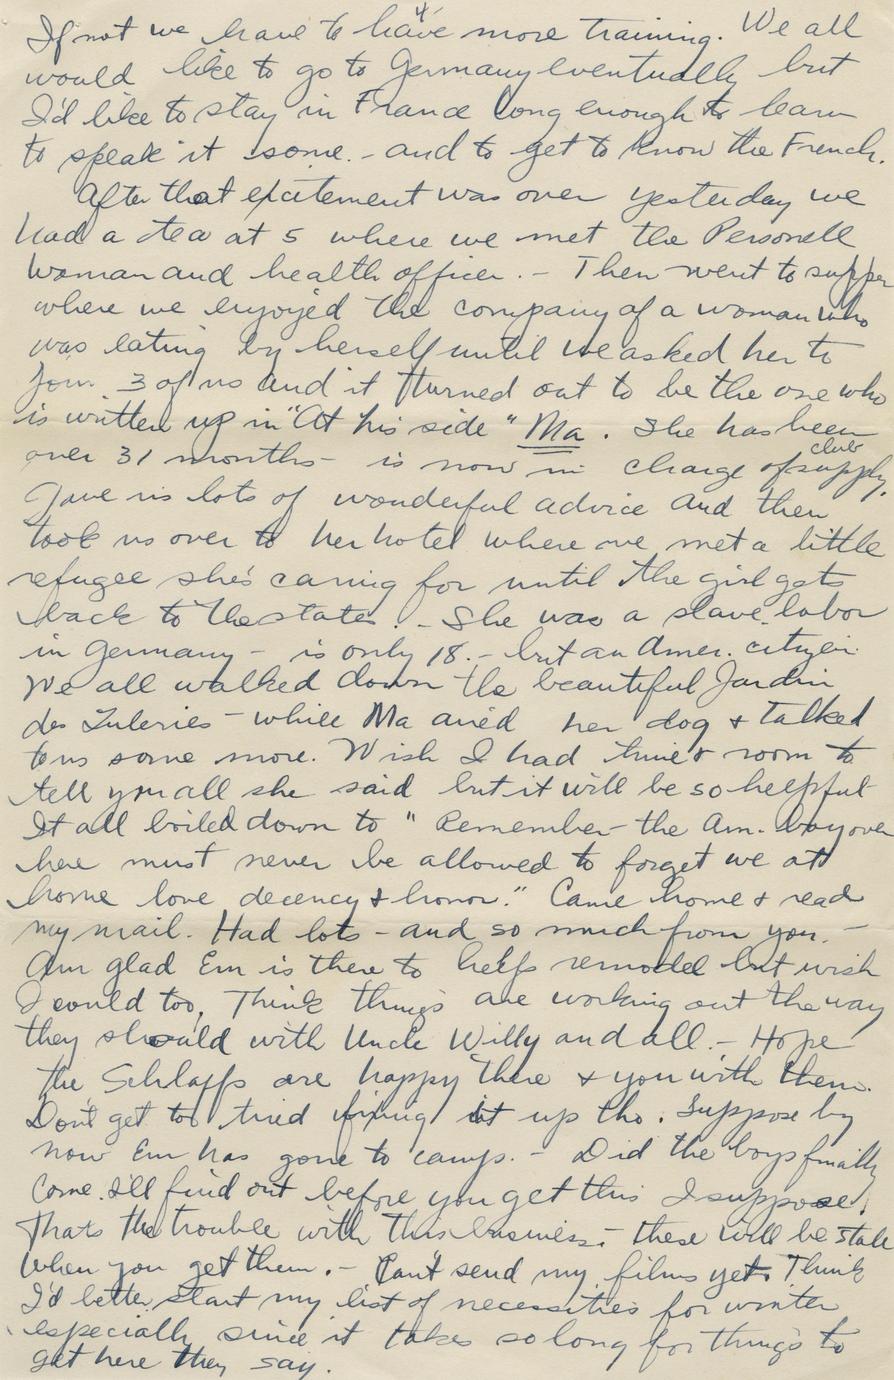 4
If not we have to have more training. We all
would like to go to Germany eventually but
I'd like to stay in France long enough to learn
to speak it some. - and to get to know the French.
After that excitement was over yesterday we
had a tea at 5 where we met the Personell
Woman and health officer. - Then went to supper
where we enjoyed the company of a woman who
was eating by herself until we asked her to
join 3 of us and it turned out to be the one who
is written up in "At his side" Ma. She has been
over 31 months - is now in charge of club supply.
Gave us lots of wonderful advice and then
took us over to her hotel where we met a little
refugee she's caring for until the girl gets
back to the states. - She was a slave labor
in Germany - is only 18. - but an Amer. citizen.
We all walked down the beautiful Jardin
des Tuleries - while Ma aired her dog & talked
to us some more. Wish I had time & room to
tell you all she said but it will be so helpful
It all boiled down to "Remember - the Am. boy over
here must never be allowed to forget we at
home love decency & honor." Came home & read
my mail. Had lots - and so much from you. -
Am glad Em is there to help remodel but wish
I could too. Think things are working out the way
they should with Uncle Willy and all. - Hope
the Schlaffs are happy there & you with them.
Don't get too tired fixing it up tho. Suppose by
now Em has gone to camp. - Did the boys finally
come. I'll find out before you get this I suppose.
Thats the trouble with this business - these will be stale
when you get them. - Can't send my films yet. Think
I'd better start my list of necessities for winter
especially since it takes so long for things to
get here they say.